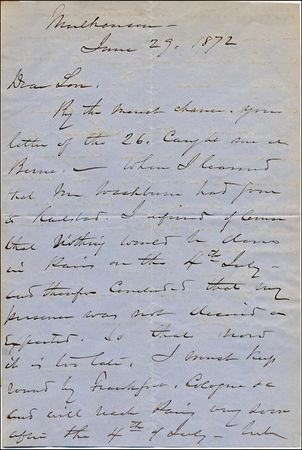 Mulhausen –
June 29, 1872
Dear Son.
By the merest chance. your
letter of the 26. Caught me at
Berne. – When I learned
that Mr Washburne had gone
to Carlsbad. I inferred of course
that Nothing would be done
in Paris on the 4th July –
and therefore Concluded that my
presence was not desired or
expected. So that now
it is too late. I must keep
round by Frankfort. Cologne &c
and will reach Paris very soon
after the 4th of July – but